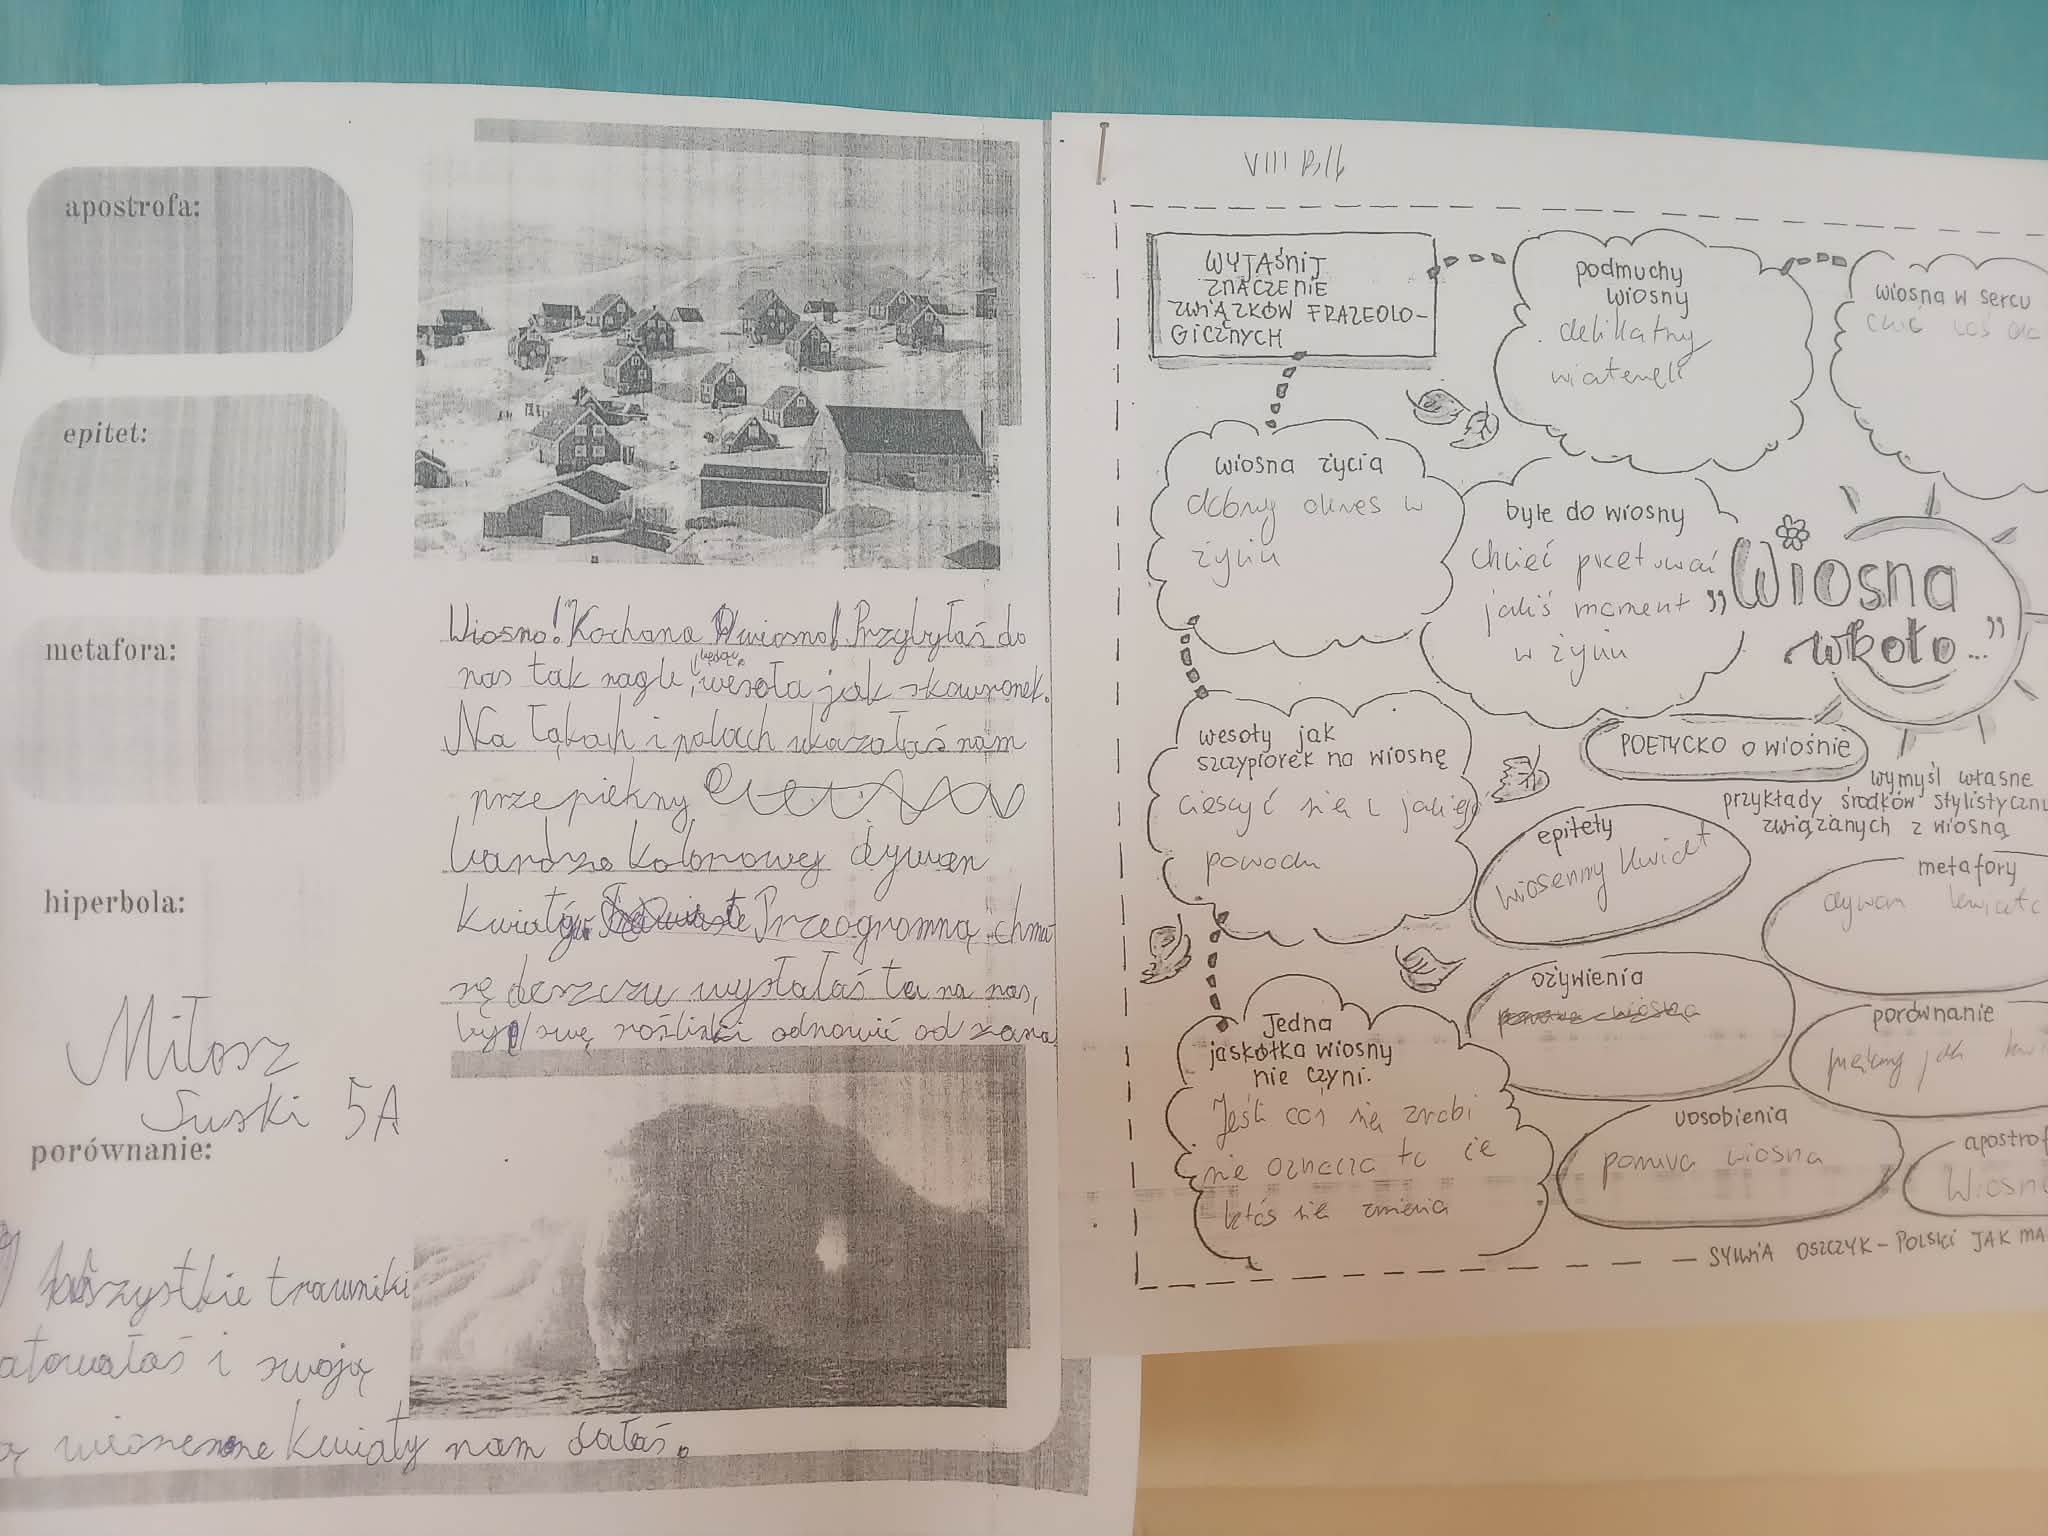 apostrofa:
epitet:
metafora:
hiperbola:
Miłosz
Suski 5A
porównanie:
Wiosno! Kochana wiosno! Przybyłaś do
nas tak nagle, będąc wesoła jak skowronek.
Na łąkach i polach ukazałaś nam
przepiękny
bardzo kolorowy dywan
kwiatów. Przeogromną chmu
rę deszczu wysłałaś tu na nas,
by swe roślinki odnowić od zaraz
wszystkie trawniki
i swoją
wiosenne kwiaty nam dałaś.
VIII B/b
WYJAŚNIJ
ZNACZENIE
ZWIĄZKÓW FRAZEOLO-
GICZNYCH
podmuchy
wiosny
delikatny
wiaterek
wiosna w sercu
chęć coś
wiosna życia
dobry okres w
życiu
byle do wiosny
chcieć przetrwać
jakiś moment
w życiu
„Wiosna
wkoło..."
wesoły jak
szczypiorek na wiosnę
cieszyć się z jakiegoś
powodu
POETYCKO O WIOŚNIE
wymyśl własne
przykłady środków stylistyczny
związanych z wiosną
epitety
wiosenny kwiat
metafory
dywan kwiató
ożywienia
porównanie
piękny jak kwi
Jedna
jaskółka wiosny
nie czyni.
Jeśli coś się zrobi
nie oznacza to że
ktoś się zmienia
uosobienia
ponura wiosna
apostrof
Wiosn
— SYLWIA OSZCZYK – POLSKI JAK MA